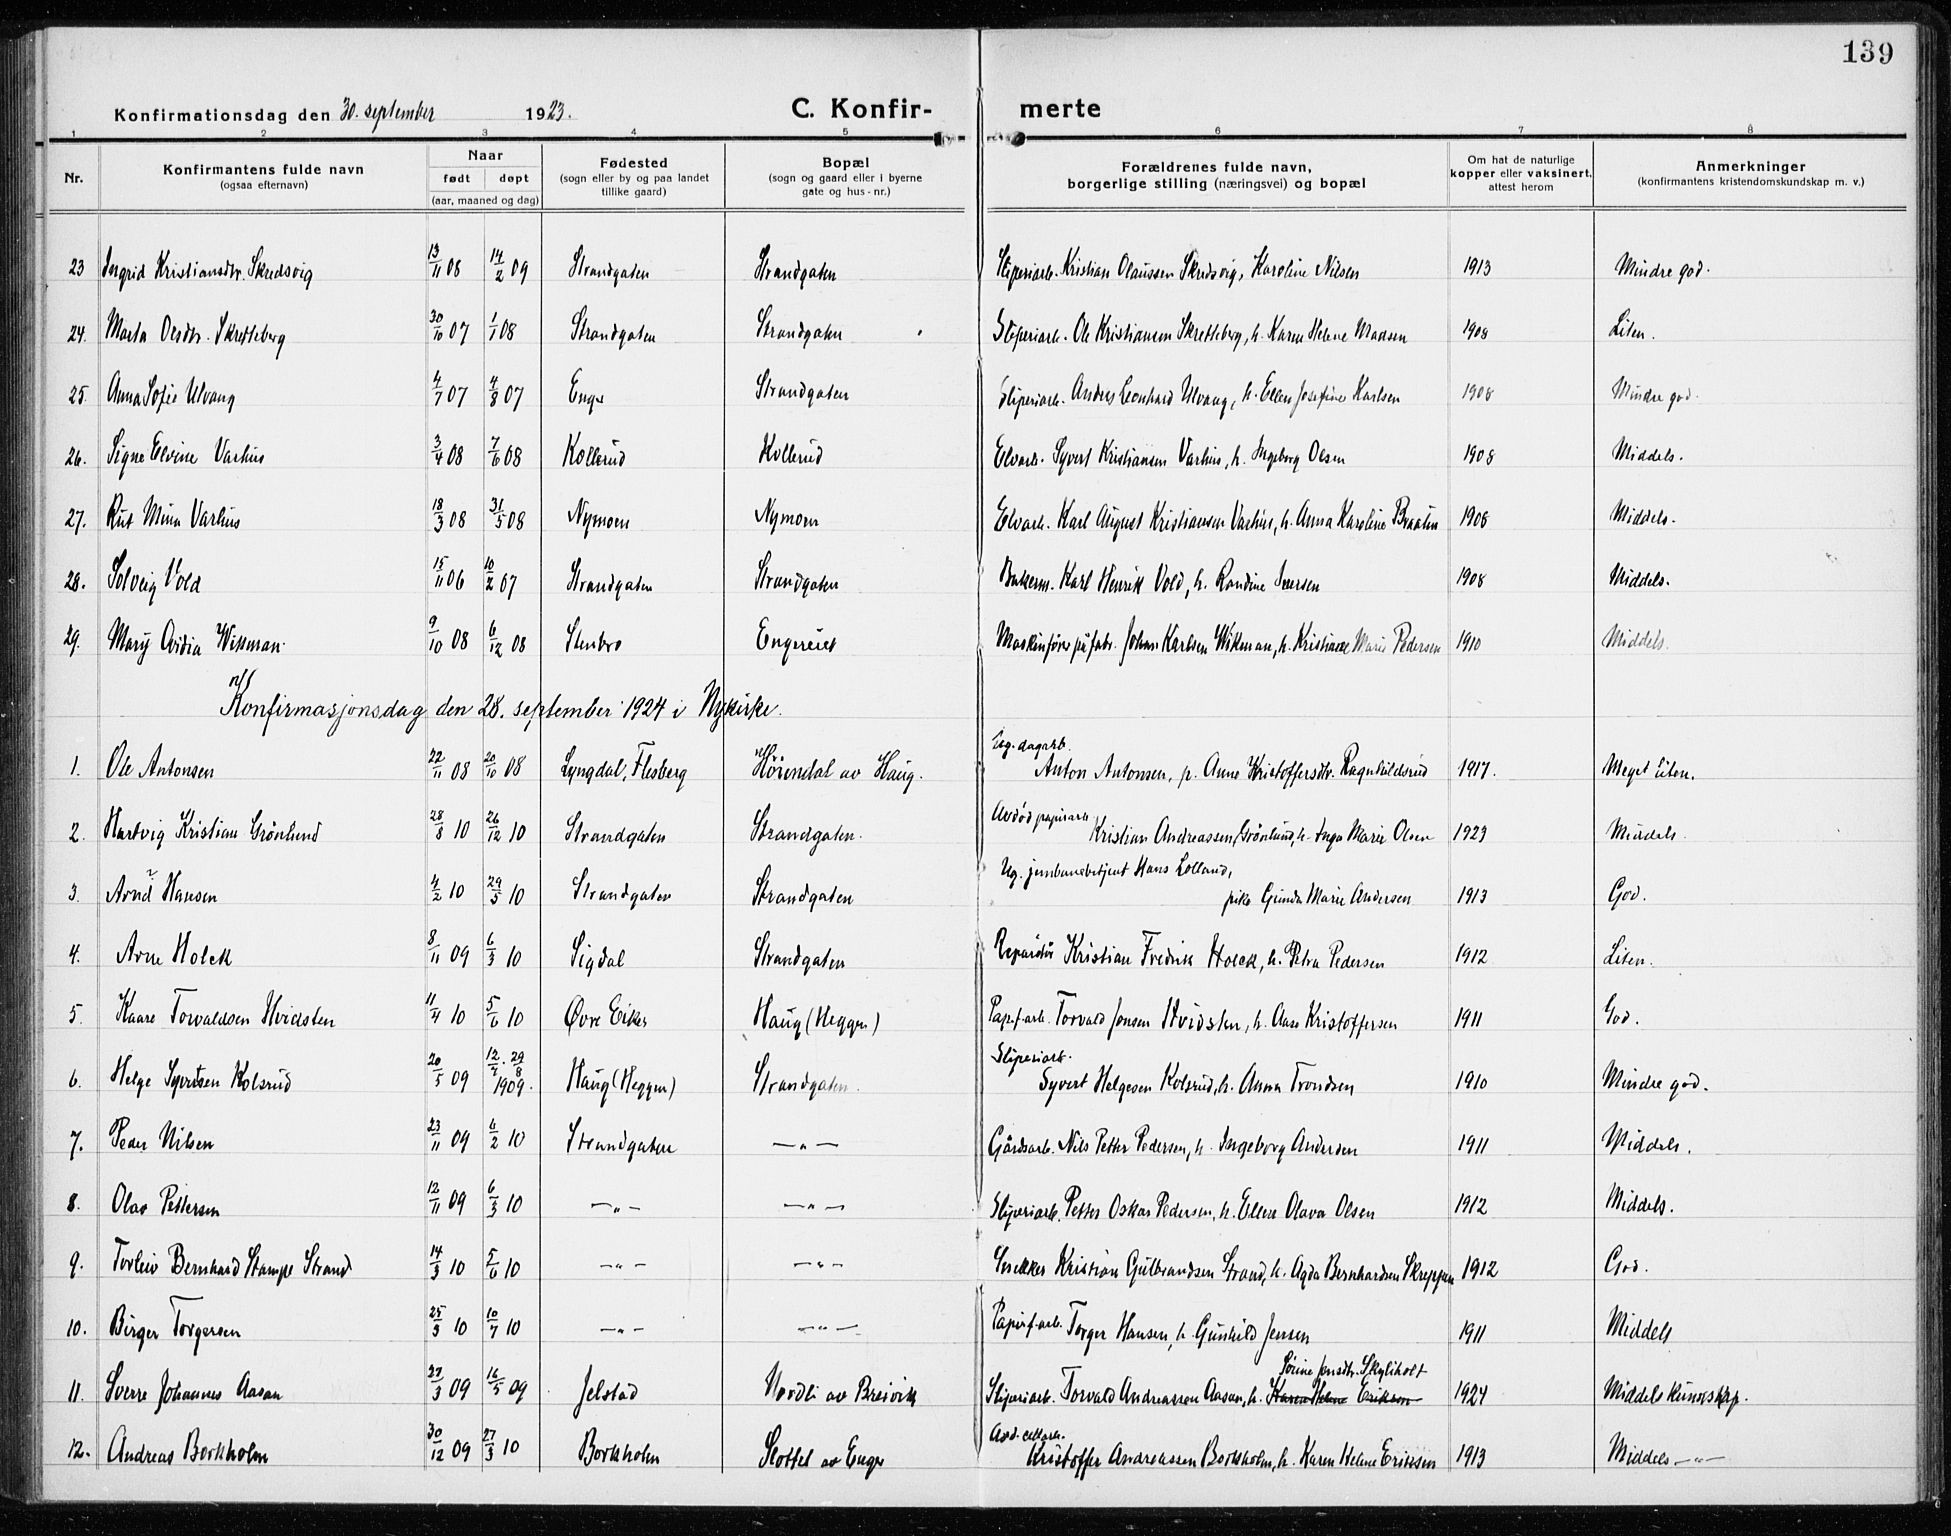 139
Konfirmationsdag den 30. september 1923. C. Konfir- merte
1 2 3 4 5 6 7 8
Nr. Konfirmantens fulde navn (ogsaa efternavn) Naar født døpt (aar, maaned og dag) Fødested (sogn eller by og paa landet tillike gaard) Bopæl (sogn og gaard eller i byerne gate og hus-nr.) Forældrenes fulde navn, borgerlige stilling (næringsvei) og bopæl Om hat de naturlige kopper eller vaksinert, attest herom Anmerkninger (konfirmantens kristendomskundskap m. v.)
23 Ingrid Kristiansdtr. Skredsvig 13/11 08 14/2 09 Strandgaten Strandgaten Sliperiarb. Kristian Olaussen Skredsvig, Karoline Nilsen 1913 Mindre god.
24. Marta Olsdtr. Skretteberg 30/10 07 1/1 08 Strandgaten Strandgaten Sliperiarb. Ole Kristiansen Skretteberg, h. Karen Helene Madsen 1908 Liten.
25. Anna Sofie Ulvang 4/7 07 4/8 07 Enger Strandgaten Sliperiarb. Anders Leonhard Ulvang, h. Ellen Josefine Karlsen 1908 Mindre god.
26. Signe Elvine Varhus 3/4 08 7/6 08 Kollerud Kollerud Elvarb. Syvert Kristiansen Varhus, h. Ingeborg Olsen 1908 Middels.
27. Rut Mina Varhus 18/3 08 31/5 08 Nymoen Nymoen Elvarb. Karl August Kristiansen Varhus, h. Anna Karoline Braaten 1908 Middels.
28. Solveig Vold 15/11 06 10/2 07 Strandgaten Strandgaten Bakerm. Karl Henrik Vold, h. Randine Iversen 1908 Middels.
29. Mary Ovidia Wikman 9/10 08 6/12 08 Stenbro Engereiet Maskinfører på fabr. Johan Karlsen Wikman, h. Kristiane Marie Pedersen 1910 Middels.
Konfirmasjonsdag den 28. september 1924 i Nykirke.
Ug. dagarb.
1. Ole Antonsen 22/11 08 20/10 08 Lyngdal, Flesberg Hörendal av Haug. Anton Antonsen, p. Anne Kristoffersdtr. Ragnhildsrud 1917. Meget liten.
Avdöd papirarb.
2. Hartvig Kristian Grönlund 28/8 10 26/12 10 Strandgaten Strandgaten. Kristian Andreassen Grönlund, h. Inga Marie Olsen 1923 Middels.
Ug. jernbanebetjent Hans Lolland,
3. Arnd Hansen 4/2 10 29/5 10 Strandgaten Strandgaten pike Gunda Marie Andersen 1913 God.
4. Arne Holck 8/11 09 6/3 10 Sigdal Strandgaten Reparatör Kristian Fredrik Holck, h. Petra Pedersen 1912 Liten.
5. Kaare Torvaldsen Hvidsten 11/4 10 5/6 10 Øvre Eiker Haug (Heggen) Papirf.arb. Torvald Jonsen Hvidsten, h. Aase Kristoffersen 1911 God.
Sliperiarb.
6. Helge Syvertsen Kolsrud 20/5 09 12/7. 29/8 1909. Haug (Heggen) Strandgaten. Syvert Helgesen Kolsrud, h. Anna Trondsen 1910 Mindre god.
7. Peder Nilsen 23/11 09 6/2 10 Strandgaten —„— Gårdsarb. Nils Petter Pedersen, h. Ingeborg Andersen 1911 Middels.
8. Olav Pettersen 12/11 09 6/3 10 —„— —„— Sliperiarb. Petter Oskar Pedersen, h. Ellen Olava Olsen 1912 Middels.
9. Torleiv Bernhard Stampe Strand 14/3 10 5/6 10 —„— —„— Snekker Kristian Gulbrandsen Strand, h. Agda Bernhardsen Skreppen 1912 God.
10. Birger Torgersen 25/3 10 10/7 10 —„— —„— Papirf.arb. Torger Hansen, h. Gunhild Jensen 1911 Middels
Sörine Jensdtr. Skyliholt
11. Sverre Johannes Aasan 27/3 09 16/5 09 Jelstad Nordli av Breivik Sliperiarb. Torvald Andreassen Aasan, h. Karen Helene Eriksen 1924 Middels kundskap.
12. Andreas Borkholm 30/12 09 27/3 10 Borkholm Slottet av Enger Kristoffer Andreassen Borkholm, h. Karen Helene Eriksen 1913 Middels —„—